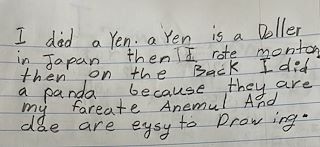 I did a Yen. a Yen is a Doller
in Japan then I rote monton
then on the Back I did
a panda because they are
my fareate Anemul And
dae are eysy to Drawing.